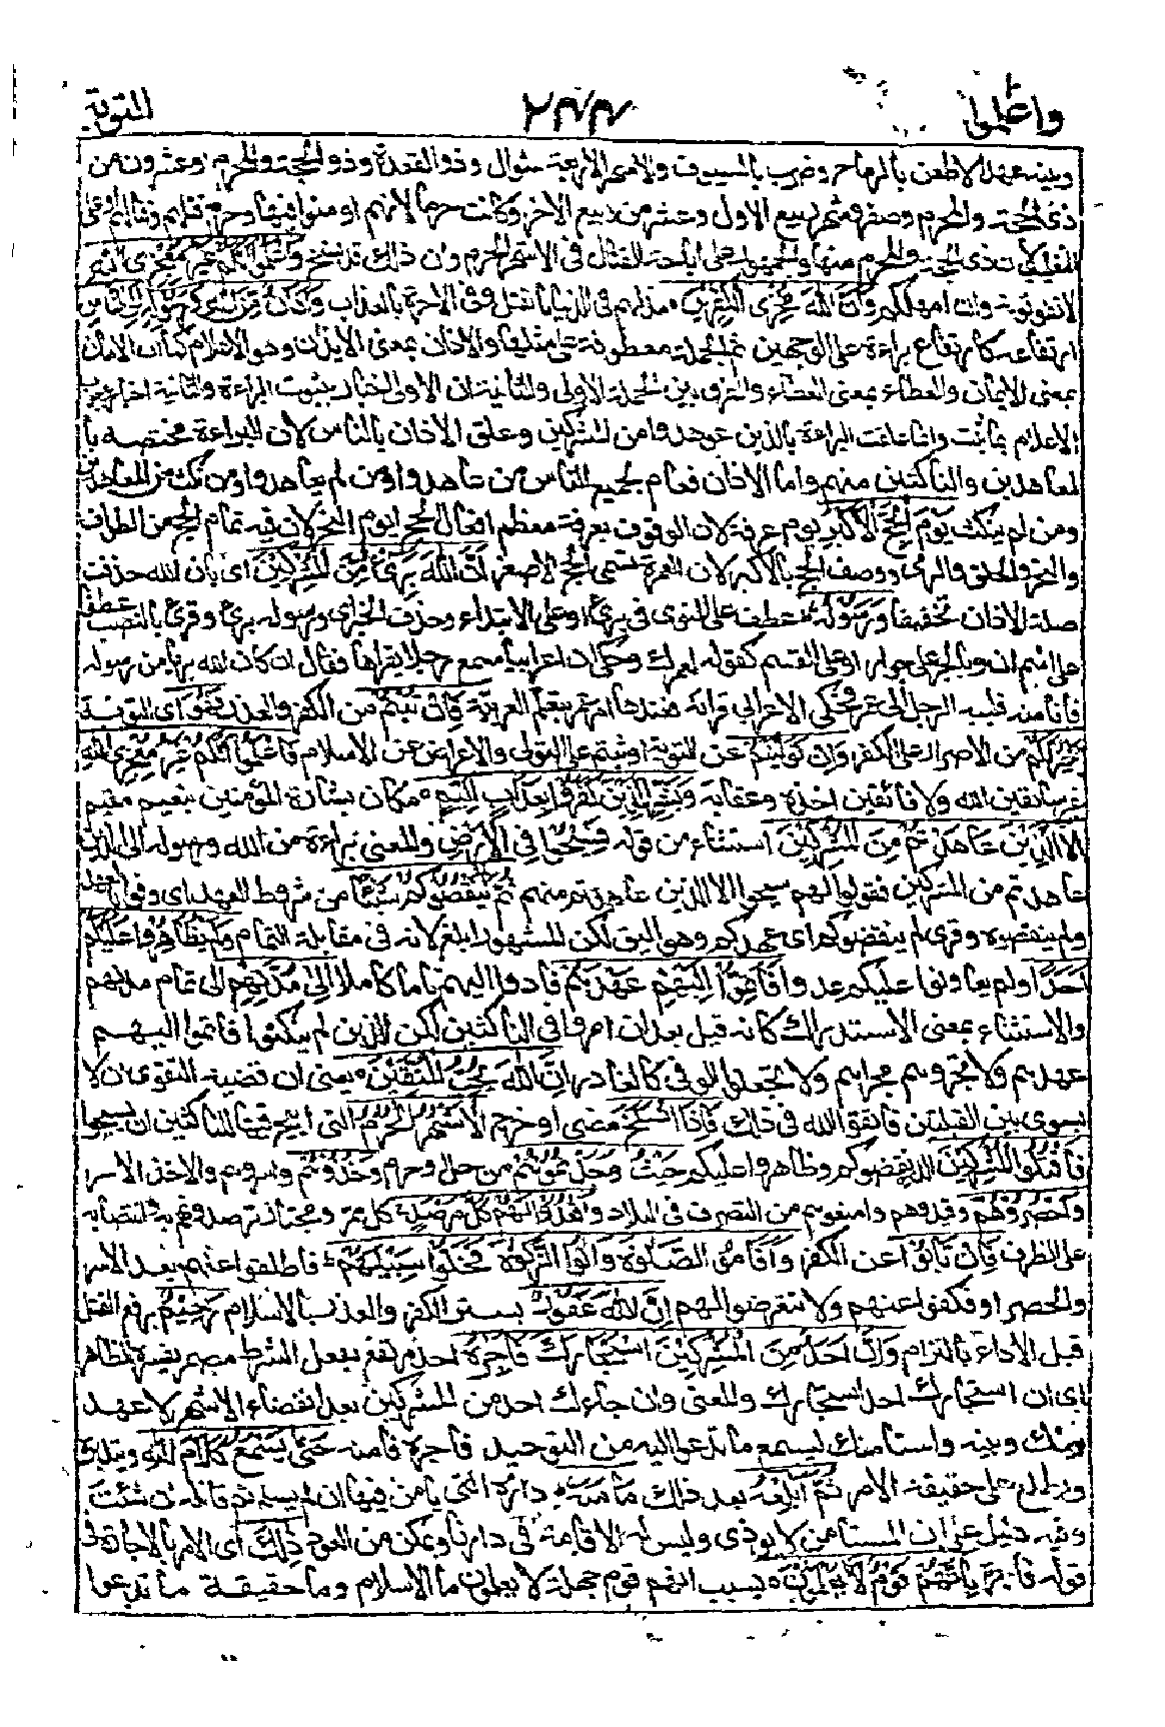 واعلموا ۲۴۴ التوبة
وبينه عهد الا طعن بالرماح وضرب بالسيوف والاشهر الاربعة شوال وذو القعدة وذو الحجة والمحرم او عشرون من
ذى الحجة والمحرم وصفر وشهر ربيع الاول وعشر من ربيع الاخر وكانت حرما لانهم اومنوا فيها وحرم قتلهم وقتالهم او على
التغليب لان ذى الحجة والمحرم منها والجمهور على اباحة القتال فى الاشهر الحرم وان ذلك قد نسخ واعلموا انكم غير معجزى الله
لا تفوتونه وان امهلكم وان الله مخزى الكفرين مذلهم فى الدنيا بالقتل وفى الاخرة بالعذاب واذان من الله ورسوله الى الناس
ارتفاعه كارتفاع براءة على الوجهين ثم الجملة معطوفة على مثلها والاذان بمعنى الايذان وهو الاعلام كما ان الامان
بمعنى الايمان والعطاء بمعنى الاعطاء والفرق بين الجملة الاولى والثانية ان الاولى اخبار بثبوت البراءة والثانية اخبار بوجوب
الاعلام بما ثبت وانما علقت البراءة بالذين عوهدوا من المشركين وعلق الاذان بالناس لان البراءة مختصة با
لمعاهدين والناكثين منهم واما الاذان فعام لجميع الناس من عاهد ومن لم يعاهد ومن نكث من المعاهدين
ومن لم ينكث يوم الحج الاكبر يوم عرفة لان الوقوف بعرفة معظم افعال الحج او يوم النحر لان فيه تمام الحج من الطواف
والنحر والحلق والرمى ووصف الحج بالاكبر لان العمرة تسمى الحج الاصغر ان الله برئ من المشركين اى بان الله حذفت
صلة الاذان تخفيفا ورسوله عطف على المنوى فى برئ او على الابتداء وحذف الخبر اى ورسوله برئ وقرئ بالنصب عطفا
على اسم ان وبالجر على الجوار او على القسم كقوله لعمرك وحكى ان اعرابيا سمع رجلا يقرأها فقال ان كان الله بريا من رسوله
فانا منه فلببه الرجل الى عمر فحكى الاعرابى قراءته فعندها امر عمر بتعلم العربية فان تبتم من الكفر والغدر فهو اى التوبة
خير لكم من الاصرار على الكفر وان توليتم عن التوبة او ثبتم على التولى والاعراض عن الاسلام فاعلموا انكم غير معجزى الله
غير سابقين الله ولا فائتين اخذه وعقابه وبشر الذين كفروا بعذاب اليم مكان بشارة المؤمنين بنعيم مقيم
الا الذين عاهدتم من المشركين استثناء من قوله فسيحوا فى الارض والمعنى براءة من الله ورسوله الى الذين
عاهدتم من المشركين فقولوا لهم سيحوا الا الذين عاهدتم منهم ثم لم ينقصوكم شيئا من شروط العهد اى وفوا بالعهد
ولم ينقضوه وقرئ لم ينقضوكم اى عهدكم وهو اليق لكن المشهورة ابلغ لانه فى مقابلة التمام ولم يظاهروا عليكم
احدا ولم يعاونوا عليكم عدوا فاتموا اليهم عهدهم فادوا اليهم تاما كاملا الى مدتهم الى تمام مدتهم
والاستثناء بمعنى الاستدراك كانه قيل بعد ان امروا فى الناكثين لكن الذين لم ينكثوا فاتموا اليهم
عهدهم ولا تجروهم مجراهم ولا تجعلوا الوفى كالغادر ان الله يحب المتقين يعنى ان قضية التقوى ان لا
يسوى بين القبيلتين فاتقوا الله فى ذلك فاذا انسلخ مضى او خرج الاشهر الحرم التى ابيح فيها للناكثين ان يسيحوا
فاقتلوا المشركين الذين نقضوكم وظاهروا عليكم حيث وجدتموهم من حل وحرم وخذوهم واسروهم والاخذ الاسر
واحصروهم وقيدوهم وامنعوهم من التصرف فى البلاد واقعدوا لهم كل مرصد كل ممر ومجتاز ترصدونهم به وانتصابه
على الظرف فان تابوا عن الكفر واقاموا الصلوة واتوا الزكوة فخلوا سبيلهم فاطلقوا عنهم بعد الاسر
والحصر او فكفوا عنهم ولا تتعرضوا لهم ان الله غفور بستر الكفر والغدر بالاسلام رحيم برفع القتل
قبل الاداء بالالتزام وان احد من المشركين استجارك فاجره احد مرتفع بفعل الشرط مضمر يفسره الظاهر
اى ان استجارك احد استجارك والمعنى وان جاءك احد من المشركين بعد انقضاء الاشهر لا عهد
بينك وبينه واستامنك ليسمع ما تدعو اليه من التوحيد فاجره فامنه حتى يسمع كلام الله ويتدبره
ويطلع على حقيقة الامر ثم ابلغه بعد ذلك مأمنه داره التى يامن فيها ان لم يسلم ثم قاتله ان شئت
وفيه دليل على ان المستامن لا يوذى وليس له الاقامة فى دارنا ويمكن من العود ذلك اى الامر بالاجارة فى
قوله فاجره بانهم قوم لا يعلمون بسبب انهم قوم جهلة لا يعلمون ما الاسلام وما حقيقة ما تدعوا